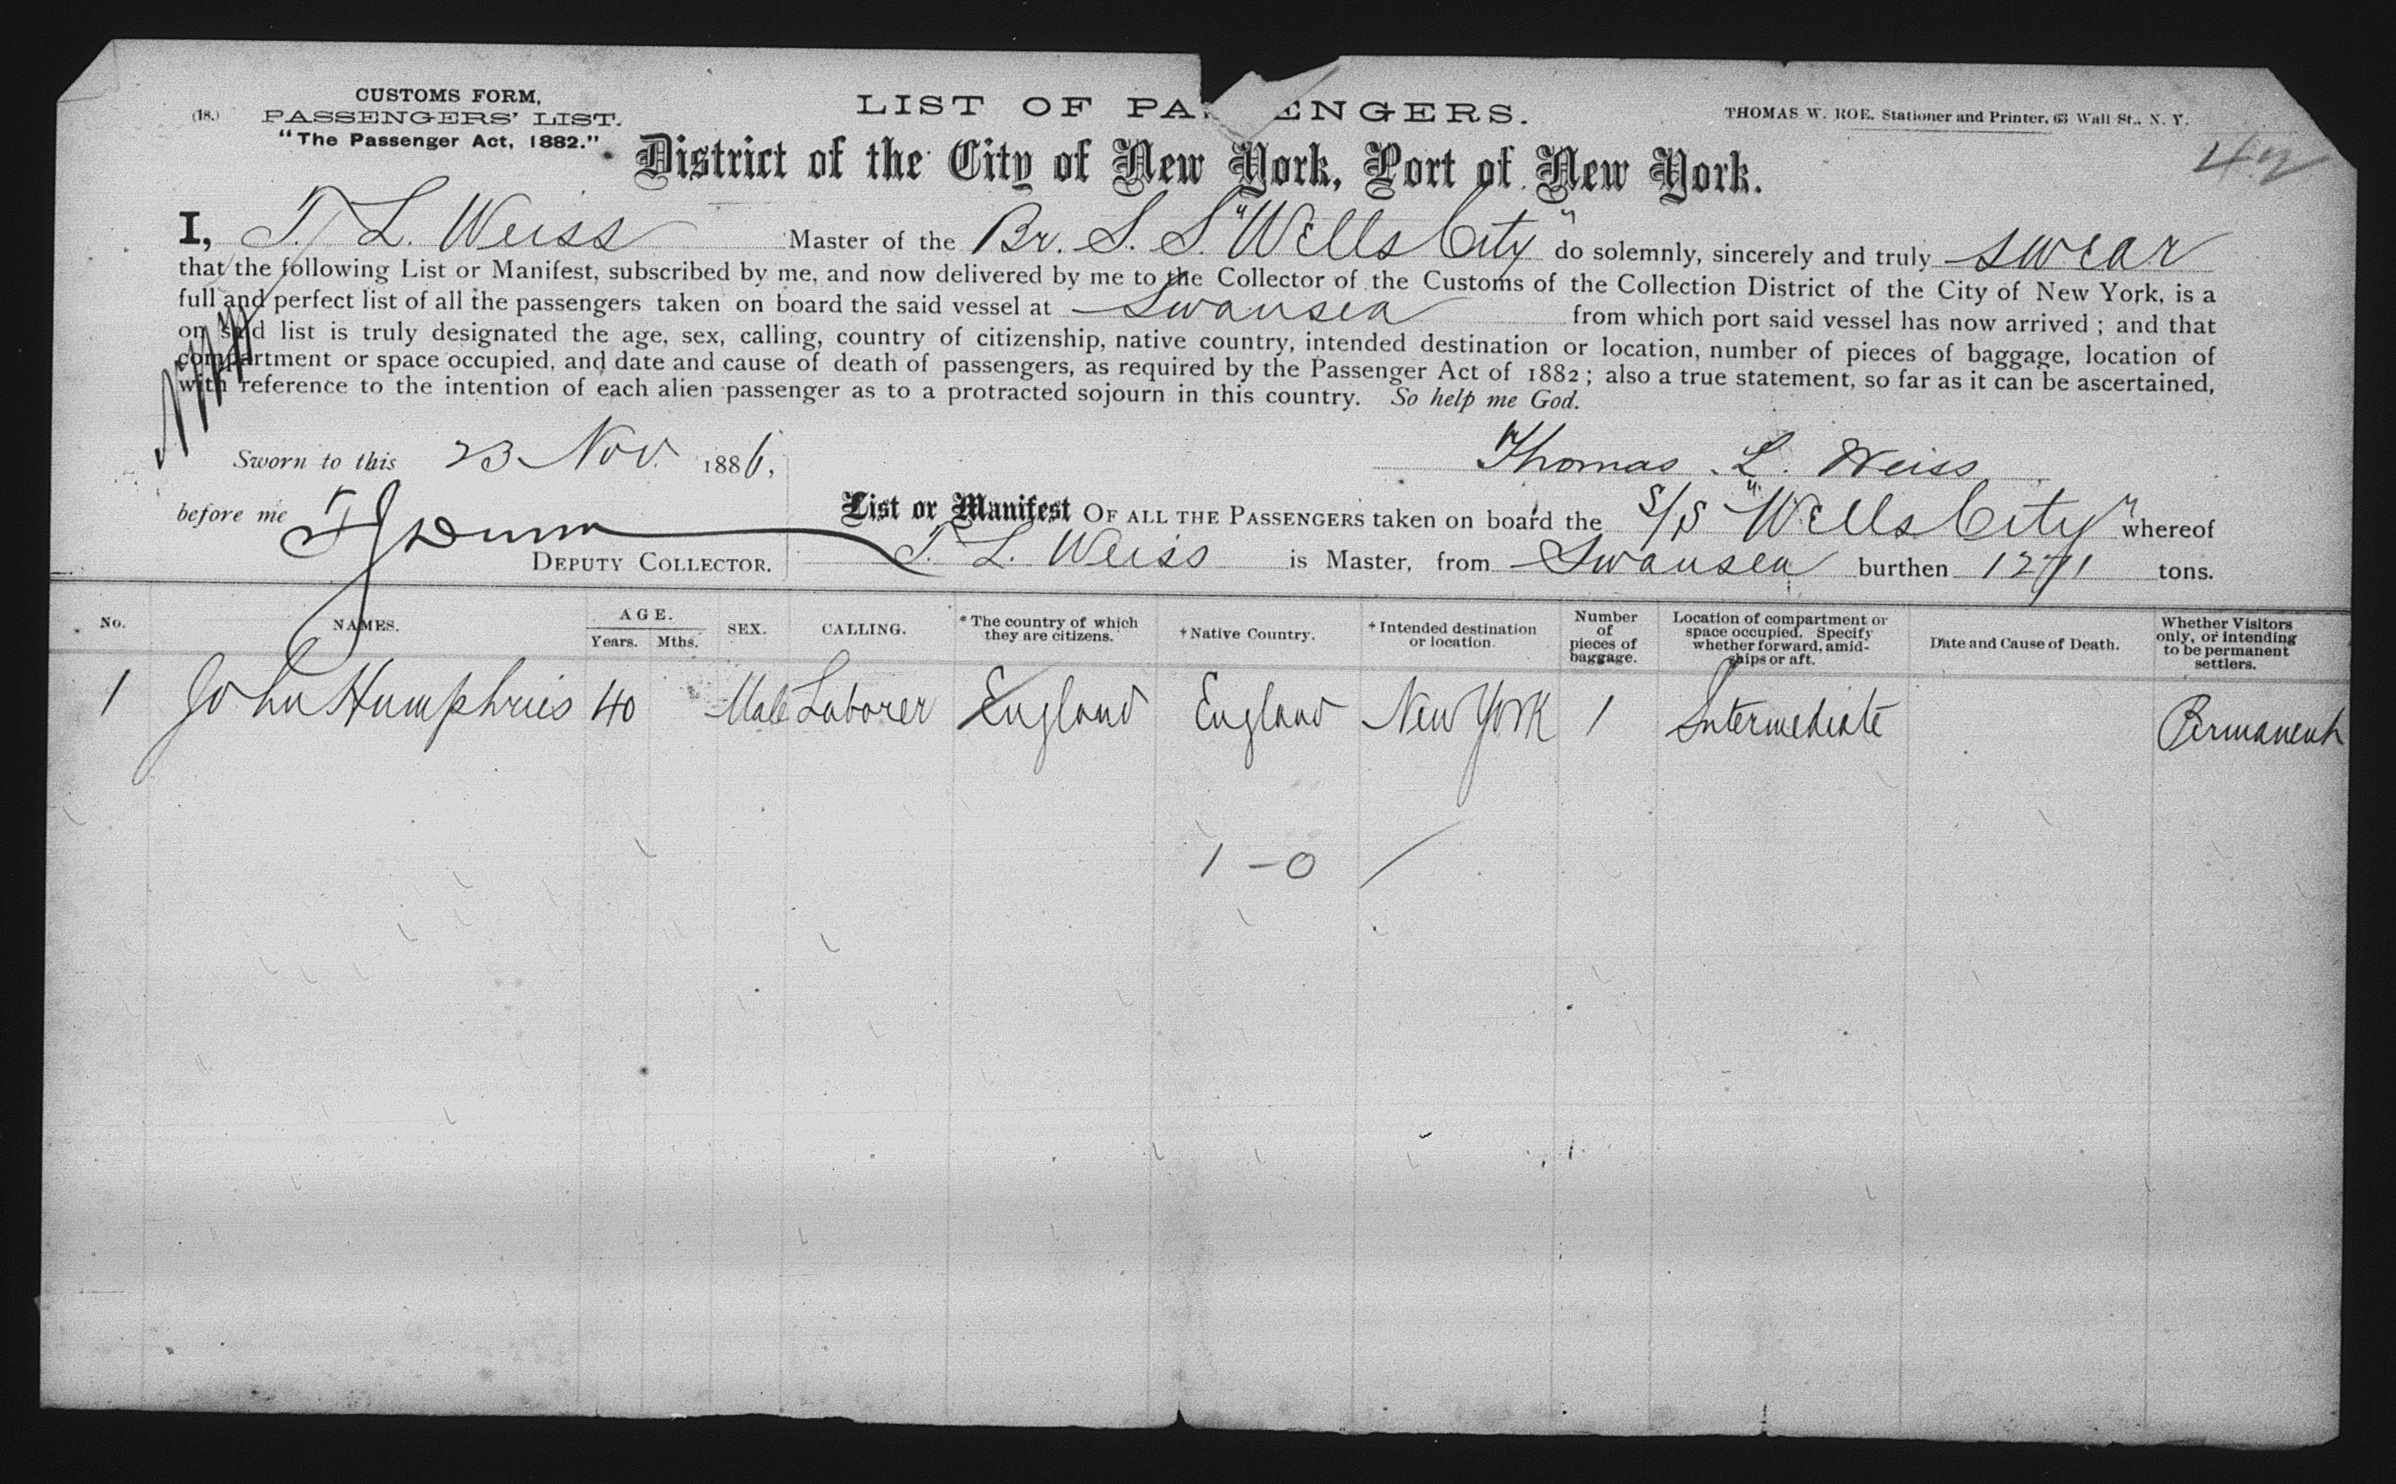 (18.)
CUSTOMS FORM,
PASSENGERS' LIST.
"The Passenger Act, 1882."
LIST OF PA ENGERS.
THOMAS W. ROE, Stationer and Printer, 63 Wall St., N. Y.
42
District of the City of New York, Port of New York.
I, T. L. Weiss Master of the Br. S. S. "Wells City" do solemnly, sincerely and truly swear
that the following List or Manifest, subscribed by me, and now delivered by me to the Collector of the Customs of the Collection District of the City of New York, is a
full and perfect list of all the passengers taken on board the said vessel at Swansea from which port said vessel has now arrived; and that
on said list is truly designated the age, sex, calling, country of citizenship, native country, intended destination or location, number of pieces of baggage, location of
compartment or space occupied, and date and cause of death of passengers, as required by the Passenger Act of 1882; also a true statement, so far as it can be ascertained,
with reference to the intention of each alien passenger as to a protracted sojourn in this country. So help me God.
Sworn to this 23 Nov. 1886,
Thomas L. Weiss
before me T J Dunn
DEPUTY COLLECTOR.
List or Manifest OF ALL THE PASSENGERS taken on board the S/S "Wells City" whereof
T. L. Weiss is Master, from Swansea burthen 1271 tons.
No. NAMES. AGE. Years. Mths. SEX. CALLING. * The country of which they are citizens. † Native Country. * Intended destination or location. Number of pieces of baggage. Location of compartment or space occupied. Specify whether forward, amidships or aft. Date and Cause of Death. Whether Visitors only, or intending to be permanent settlers.
1 John Humphries 40 Male Laborer England England New York 1 Intermediate Permanent
1 - 0 /